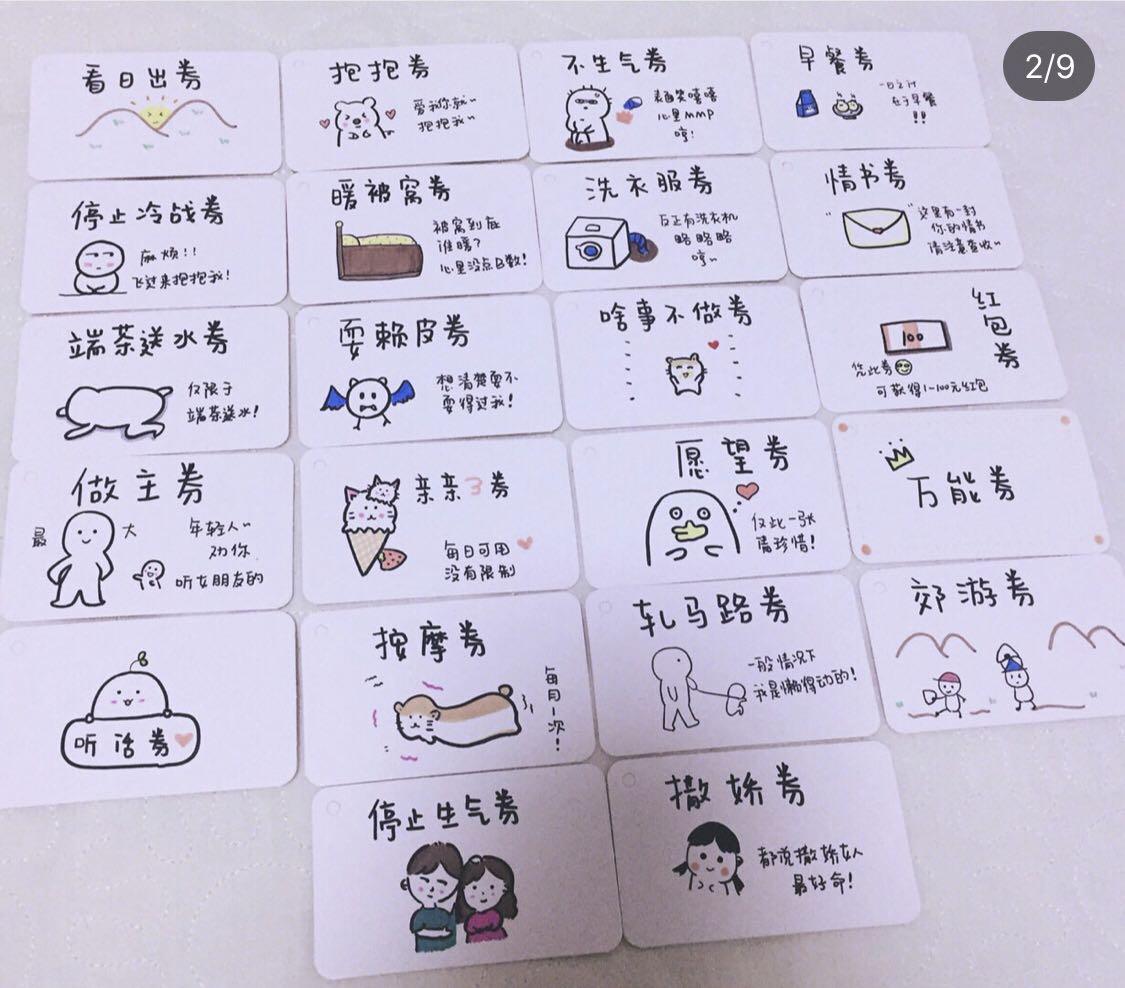 2/9
看日出券
抱抱券
爱我你就~
抱抱我~
不生气券
表面笑嘻嘻
心里MMP
哼!
早餐券
一日之计
在于早餐
!!
停止冷战券
麻烦!!
飞过来抱抱我!
暖被窝券
被窝到底
谁暖?
心里没点B数!
洗衣服券
反正有洗衣机
略略略
哼~
情书券
"这里有一封"
你的情书
请注意查收~
端茶送水券
仅限于
端茶送水!
耍赖皮券
想清楚耍不
耍得过我!
啥事不做券
红包券
100
凭此券
可获得1-100元红包
做主券
最大
年轻人~
劝你
听女朋友的
亲亲3券
每日可用
没有限制
愿望券
仅此一张
请珍惜!
万能券
听话券
按摩券
每月1次!
轧马路券
一般情况下
我是懒得动的!
郊游券
停止生气券
撒娇券
都说撒娇女人
最好命!